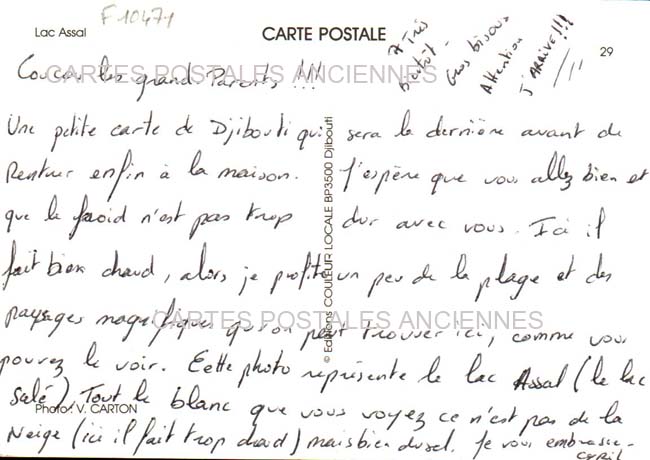 F10471
Lac Assal
CARTE POSTALE
29
A Très
bientôt -
Gros bisous
Attention
J'ARRIVE !!!
Coucou les grand Parents !!!
CARTES POSTALES ANCIENNES
Une petite carte de Djibouti qui sera la dernière avant de
Rentrer enfin à la maison. J'espère que vous allez bien et
que le froid n'est pas trop dur avec vous. Ici il
fait bien chaud, alors je profite un peu de la plage et des
paysages magnifiques qu'on peut trouver ici, comme vous
CARTES POSTALES ANCIENNES
pouvez le voir. Cette photo représente le lac Assal (le lac
salé). Tout le blanc que vous voyez ce n'est pas de la
Neige (ici il fait trop chaud) mais bien du sel. Je vous embrasse -
CYRIL
Photo : V. CARTON
© Editions COULEUR LOCALE BP3500 Djibouti